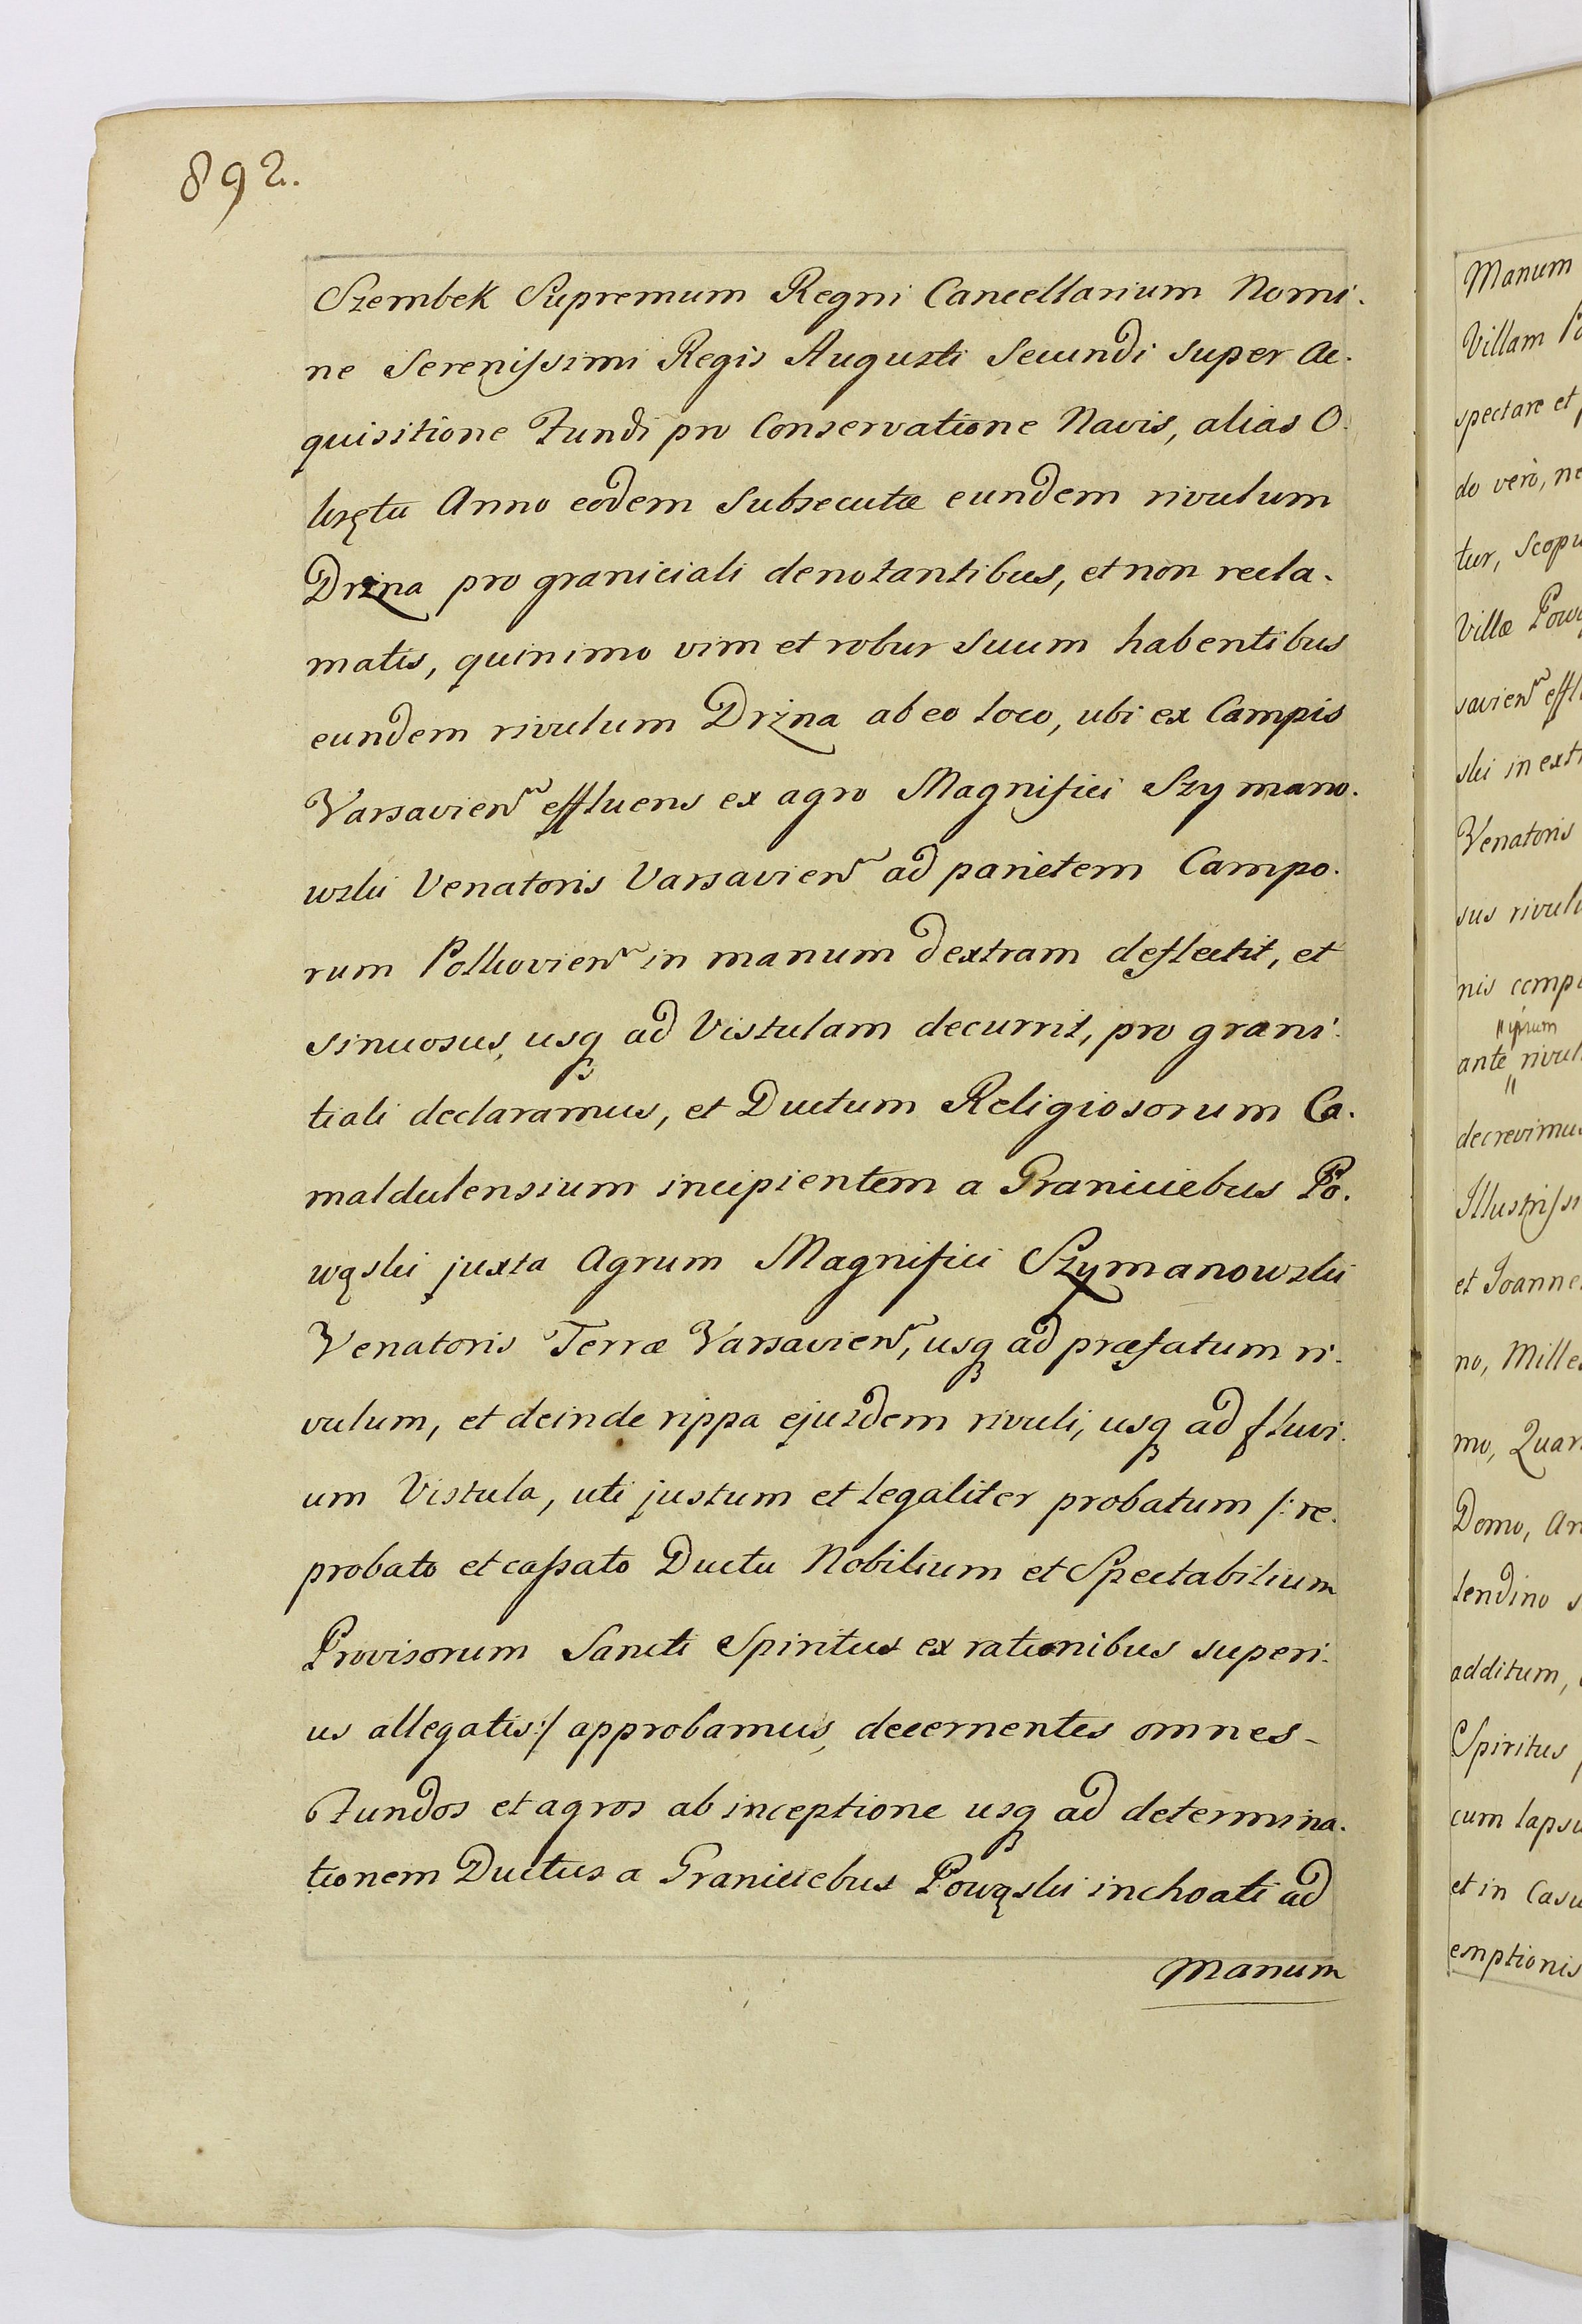 892.
Szembek Supremum Regni Cancellarium Nomi.
ne Serenissimi Regis Augusti Secundi super Ac.
quisitione Fundi pro Conservatione Navis, alias O.
krętu Anno eodem subsecutæ eundem rivulum
Drżna pro graniciali denotantibus, et non recla.
matis, quinimo vim et robur suum habentibus
eundem rivulum Drżna ab eo loco, ubi ex Campis
Varsavien~ effluens ex agro Magnifici Szymano.
wskii Venatoris Varsavien~ ad parietem Campo.
rum Polkovien~ in manum dextram deflectit, et
sinuosus, usq ad Vistulam decurrit, pro grani.
tiali declaramus, et Ductum Religiosorum Ca.
maldulensium incipientem a Graniciebus Po.
wąski juxta Agrum Magnifici Szymanowskii
Venatoris Terræ Varsavien~, usq ad præfatum ri.
vulum, et deinde rippa ejusdem rivuli, usq ad fluvi.
um Vistula, uti justum et legaliter probatum /: re.
probato et cassato Ductu Nobilium et Spectabilium
Provisorum Sancti Spiritus ex rationibus superi.
us allegatis :/ approbamus, decernentes omnes -
Fundos et agros ab inceptione usq ad determina.
tionem Ductus a Graniciebus Powąski inchoati ad
Manum
Manum
Villam
spectare et
do verò, ne
tur,
Villæ
savien~
ski in
Venatoris
sus
nis
ipsum
ante
decrevimus
et
no,
mo,
Domo,
lendino
additum,
Spiritus
cum
et in
emptionis